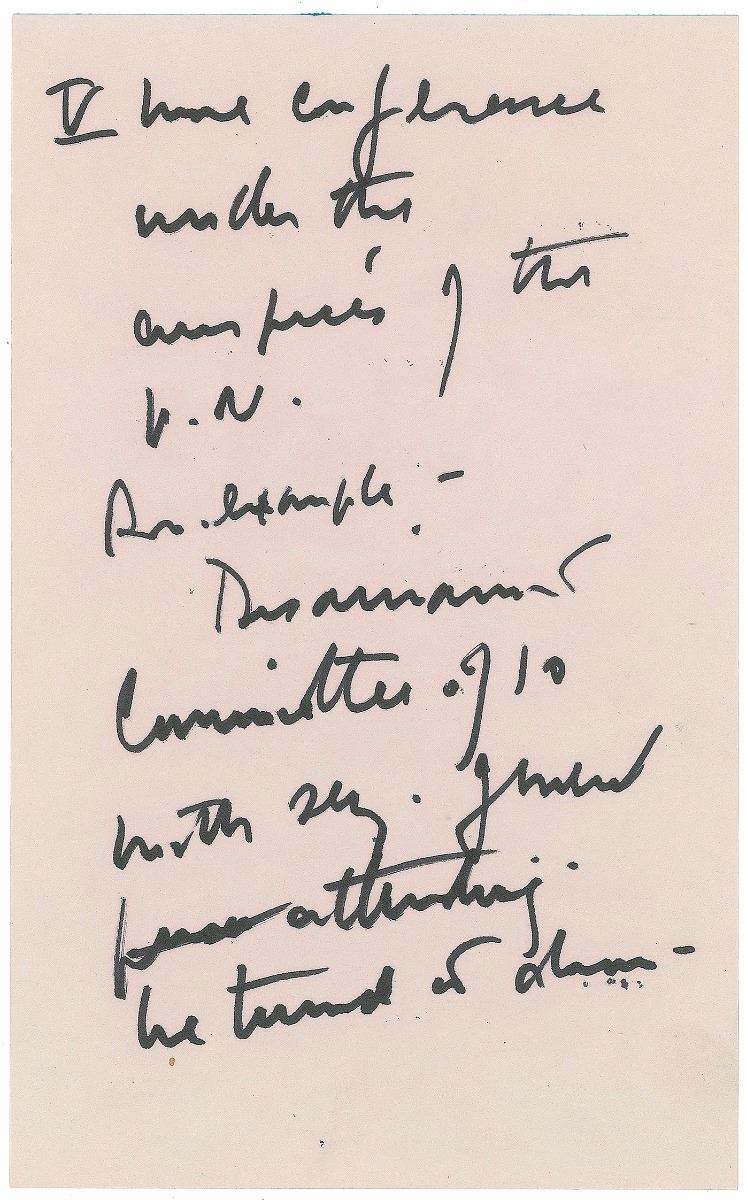 V have conference
under the
auspices of the
U.N.
For example -
Disarmament
Committee of 10
with sec. general
attending.
he turned it down -